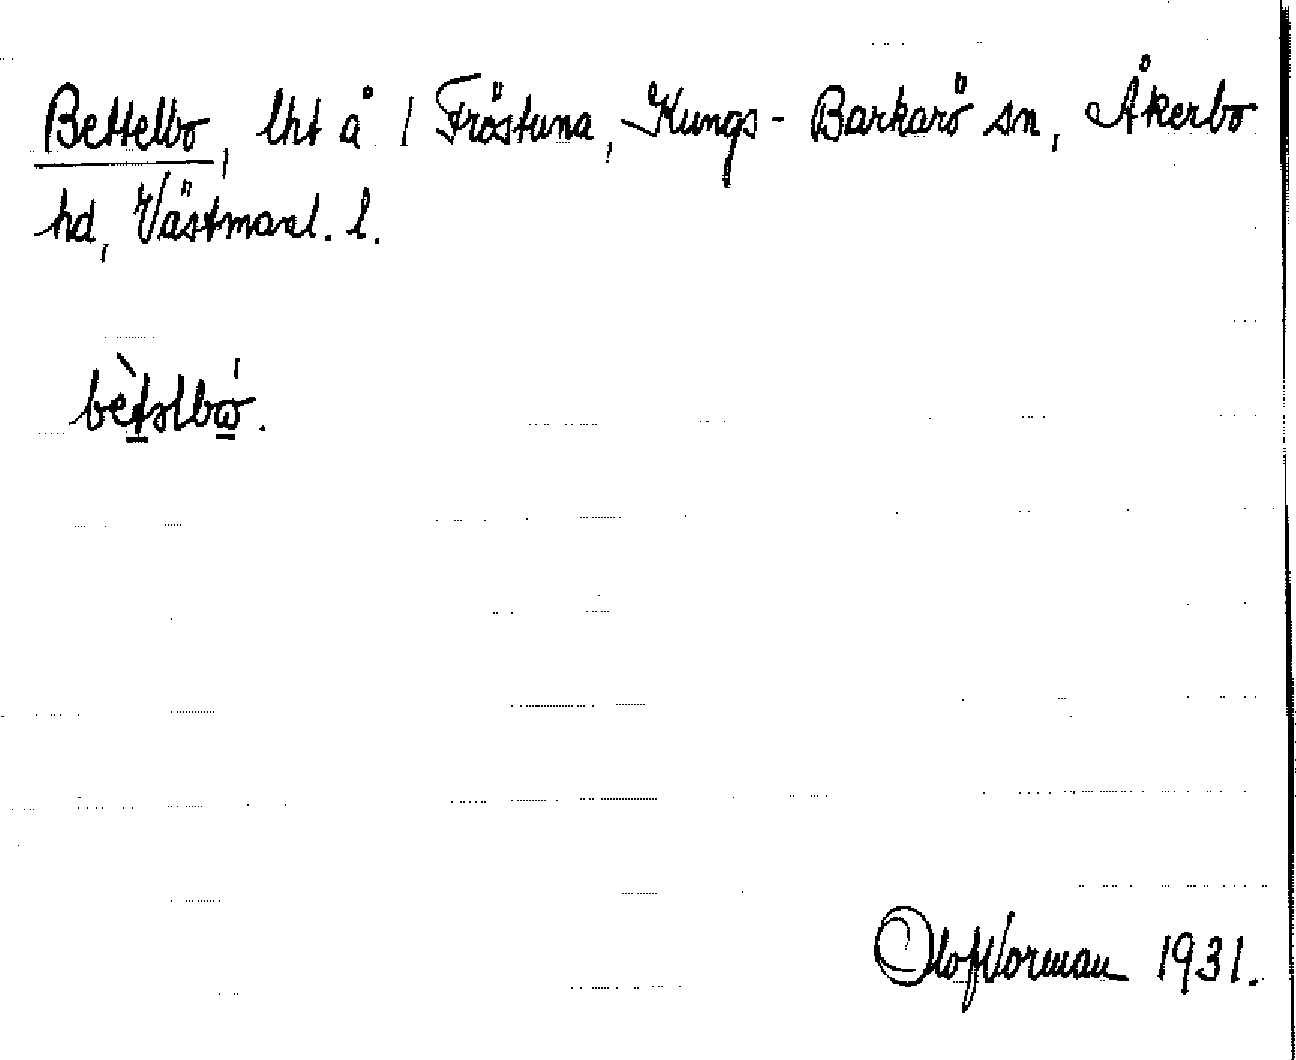 Bettelbo, lht å 1 Fröstuna, Kungs-Barkarö sn, Åkerbo
hd, Västmanl. l.
bètəlbω̲.
Olof Norman 1931.